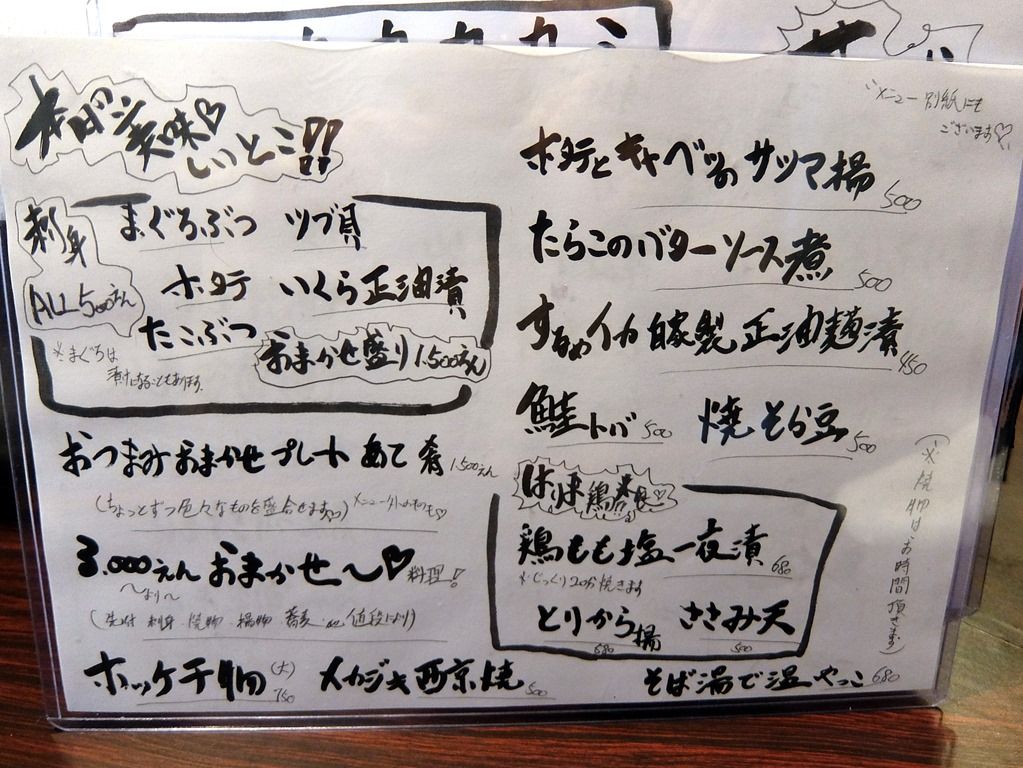 本日の美味しいとこ!!
刺身
ALL500えん
まぐろぶつ ツブ貝
ホタテ いくら正油漬
たこぶつ
おまかせ盛り1.500えん
※まぐろは
漬けになることもあります
おつまみおまかせプレート あて 肴 1.500えん
(ちょっとずつ色々なものを盛合せます♡)
3.000えん おまかせ〜♡料理!
〜より〜
(先付 刺身 焼物 揚物 蕎麦 etc 値段により)
ホッケ干物(大)750 メカジキ西京焼500
※メニュー別紙にも
ございます♡
ホタテとキャベツのサツマ揚500
たらこのバターソース煮500
するめイカ自家製正油麹漬450
鮭トバ500 焼そら豆500
はりま鶏
鶏もも塩一夜漬680
※じっくり20分焼きます
とりから揚680 ささみ天500
そば湯で温やっこ680
(※焼物はお時間頂きます)